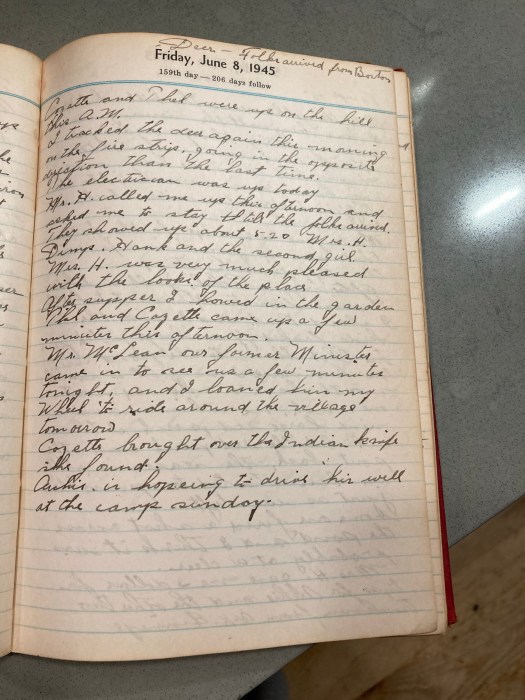 Deer - Folks arrived from Boston
Friday, June 8, 1945
159th day — 206 days follow
Cozette and Phil were up on the hill
this A.M.
I tracked the deer again this morning
on the fire strip, going in the opposite
direction than the last time.
The electician was up today
Mr. H. called me up this afternoon and
asked me to stay till the folks arrived.
They showed up about 5-20 Mrs. H.
Dimps. Hank and the second girl
Mrs. H. was very much pleased
with the looks of the place
After supper I howed in the garden
Phil and Cozette came up a few
minutes this afternoon.
Mr. McLean our former Minister
came in to see us a few minutes
tonight, and I loaned him my
Wheel to ride around the village
tomorrow
Cozette brought over the Indian knife
she found.
Archie. is hopeing to drive his well
at the camp sunday.